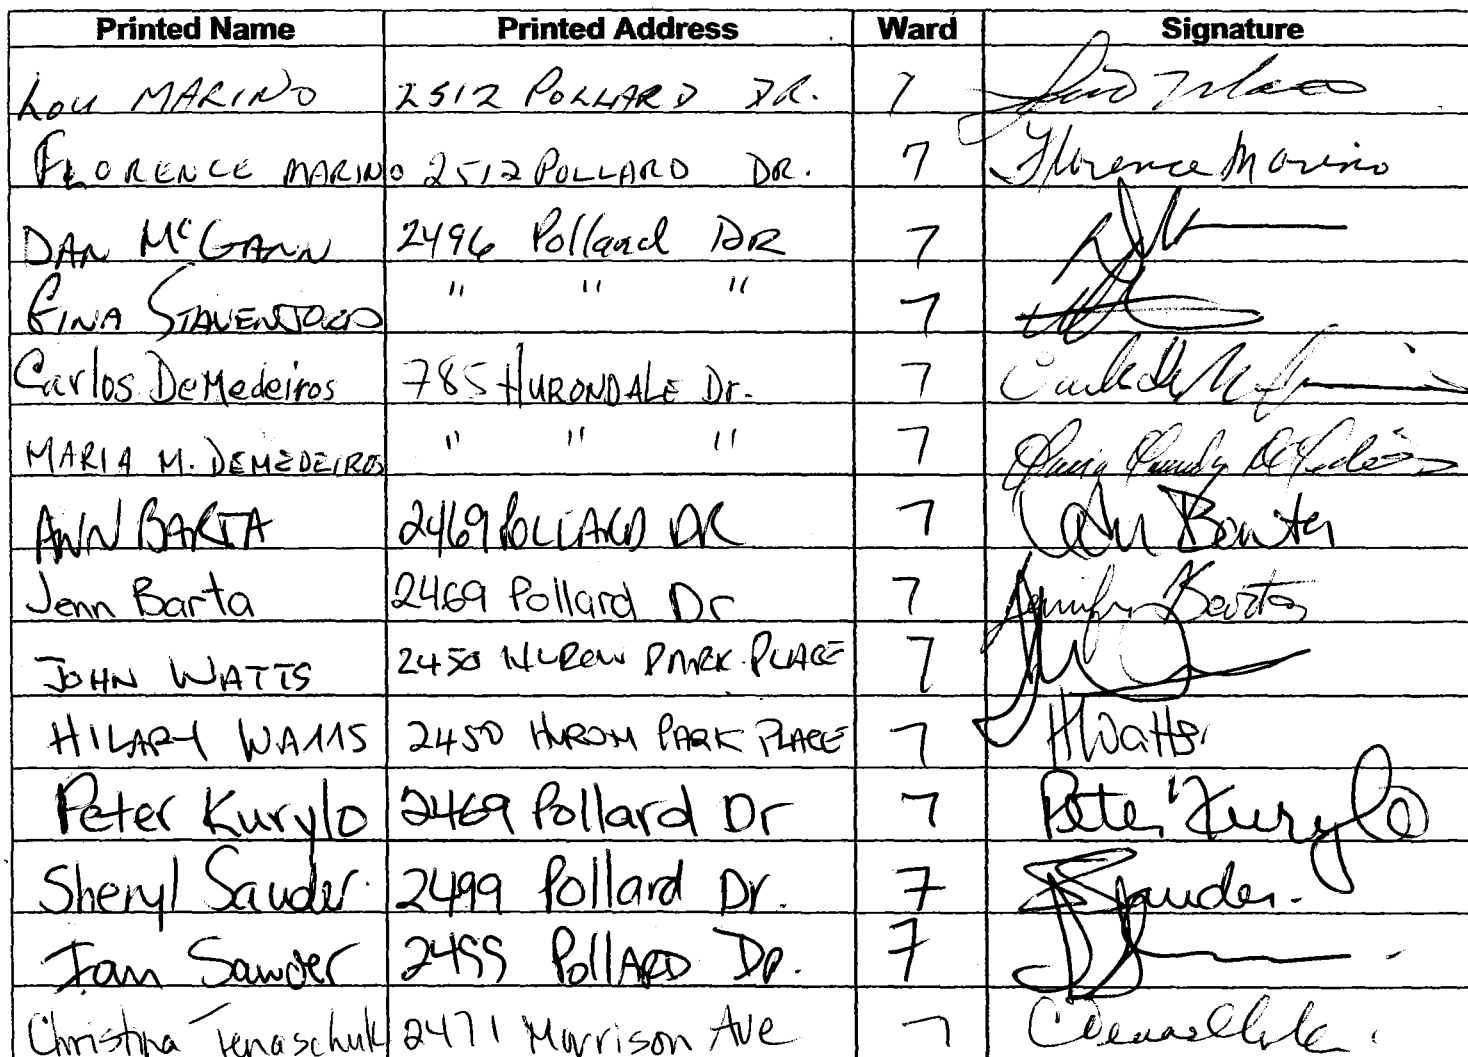 Printed Name Printed Address Ward Signature
Lou MARINO 2512 POLLARD DR. 7
FLORENCE MARINO 2512 POLLARD DR. 7 Florence Marino
DAN McGANN 2496 Pollard DR 7
" " " 7
Carlos DeMedeiros 785 HURONDALE Dr. 7
MARIA M. DEMEDEIROS " " " 7
ANN BARTA 2469 POLLARD DR 7 Ann Barta
Jenn Barta 2469 Pollard Dr 7 Jennifer Barta
JOHN WATTS 2450 HURON PARK PLACE 7
HILARY WATTS 2450 HURON PARK PLACE 7 HWatts
Peter Kurylo 2469 Pollard Dr 7 Peter Kurylo
Sheryl Sauder 2499 Pollard Dr. 7 SSauder.
Ian Sauder 2499 POLLARD DR. 7
Christina Tenaschuk 2471 Morrison Ave 7